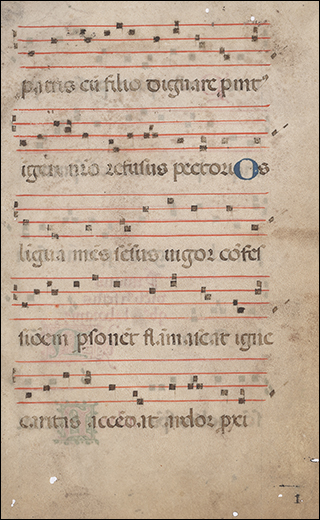 patris cū filio dignare pmt⁹
igeri nr̄o refusus pectori Os
ligua mes sēsus uigor cōfes
sionem psonet flāmescat igne
caritas accēdat ardor pxi
1